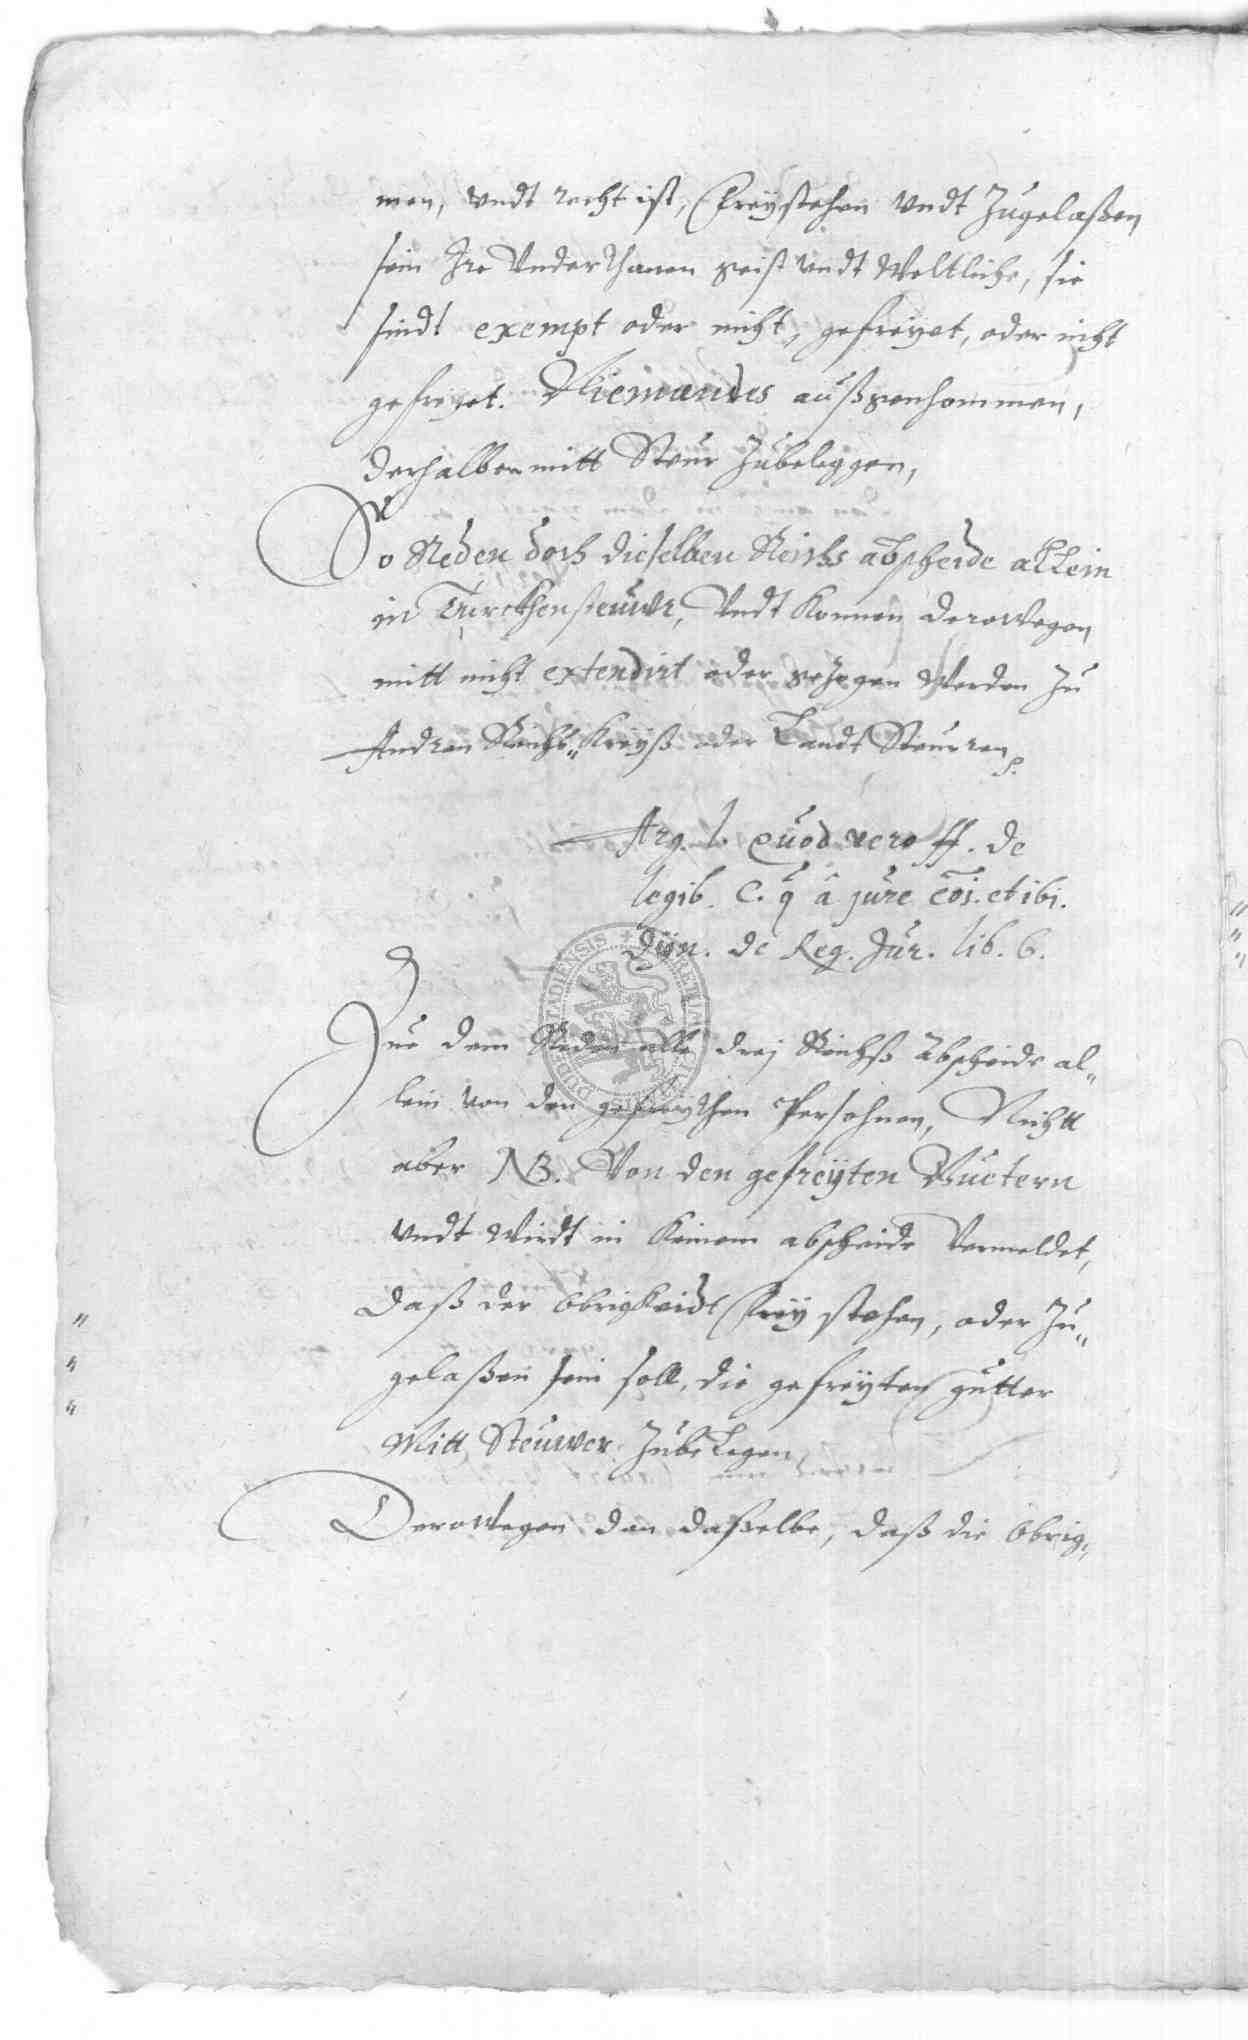 men, undt recht ist, Freystehen undt Zugelaßen
sein Ire Underthanen geist undt Weltliche, sie
sindt exempt oder nicht, gefreyet, oder nicht
gefreyet. Niemandes außgenhommen,
derhalben mitt Steur Zubeleggen,
So Reden doch dieselben Reichs abscheide allein
in Turckhensteuwr, Undt Konnen derowegen
mitt nicht extendirt oder gezogen Werden Zu
Andren Reichs„ Kreyß oder Landt Steurren
Arg. l. quod vero ff. de
legib. C. q â jure cōi. et ibi.
Dÿn. de Reg. Jur. lib. 6.
Zue dem Reden alle drej Reichß abscheide al„
lein von den gefreythen Persohnen, Nichtt
aber NB. Von den gefreÿten Guetern
undt Wirdt in Keinem abscheide Vermeldet,
daß der Obrigkeidt Frey stehen, oder Zu„
gelaßen sein soll, die gefreÿten gutter
Mitt Steuwer Zubelegen
Derowegen dan daßelbe, daß die Obrig„